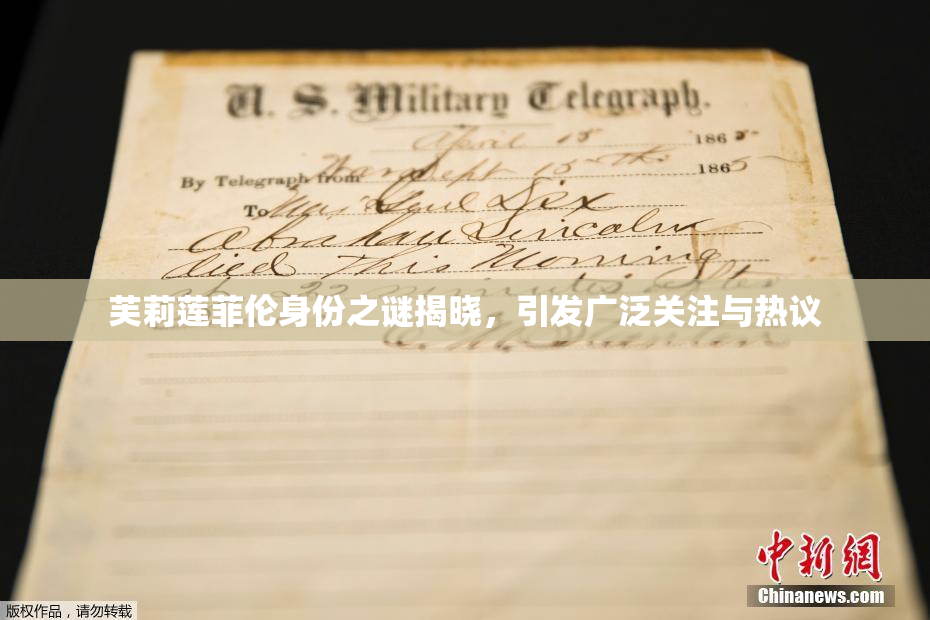 U. S. Military Telegraph.
April 15 1865
By Telegraph from War Dept 15th 1865
To Maj Genl Dix
Abraham Lincoln
died This Morning
at 22 minutes after
芙莉莲菲伦身份之谜揭晓，引发广泛关注与热议
E. M. Stanton
中新网
Chinanews.com
版权作品，请勿转载